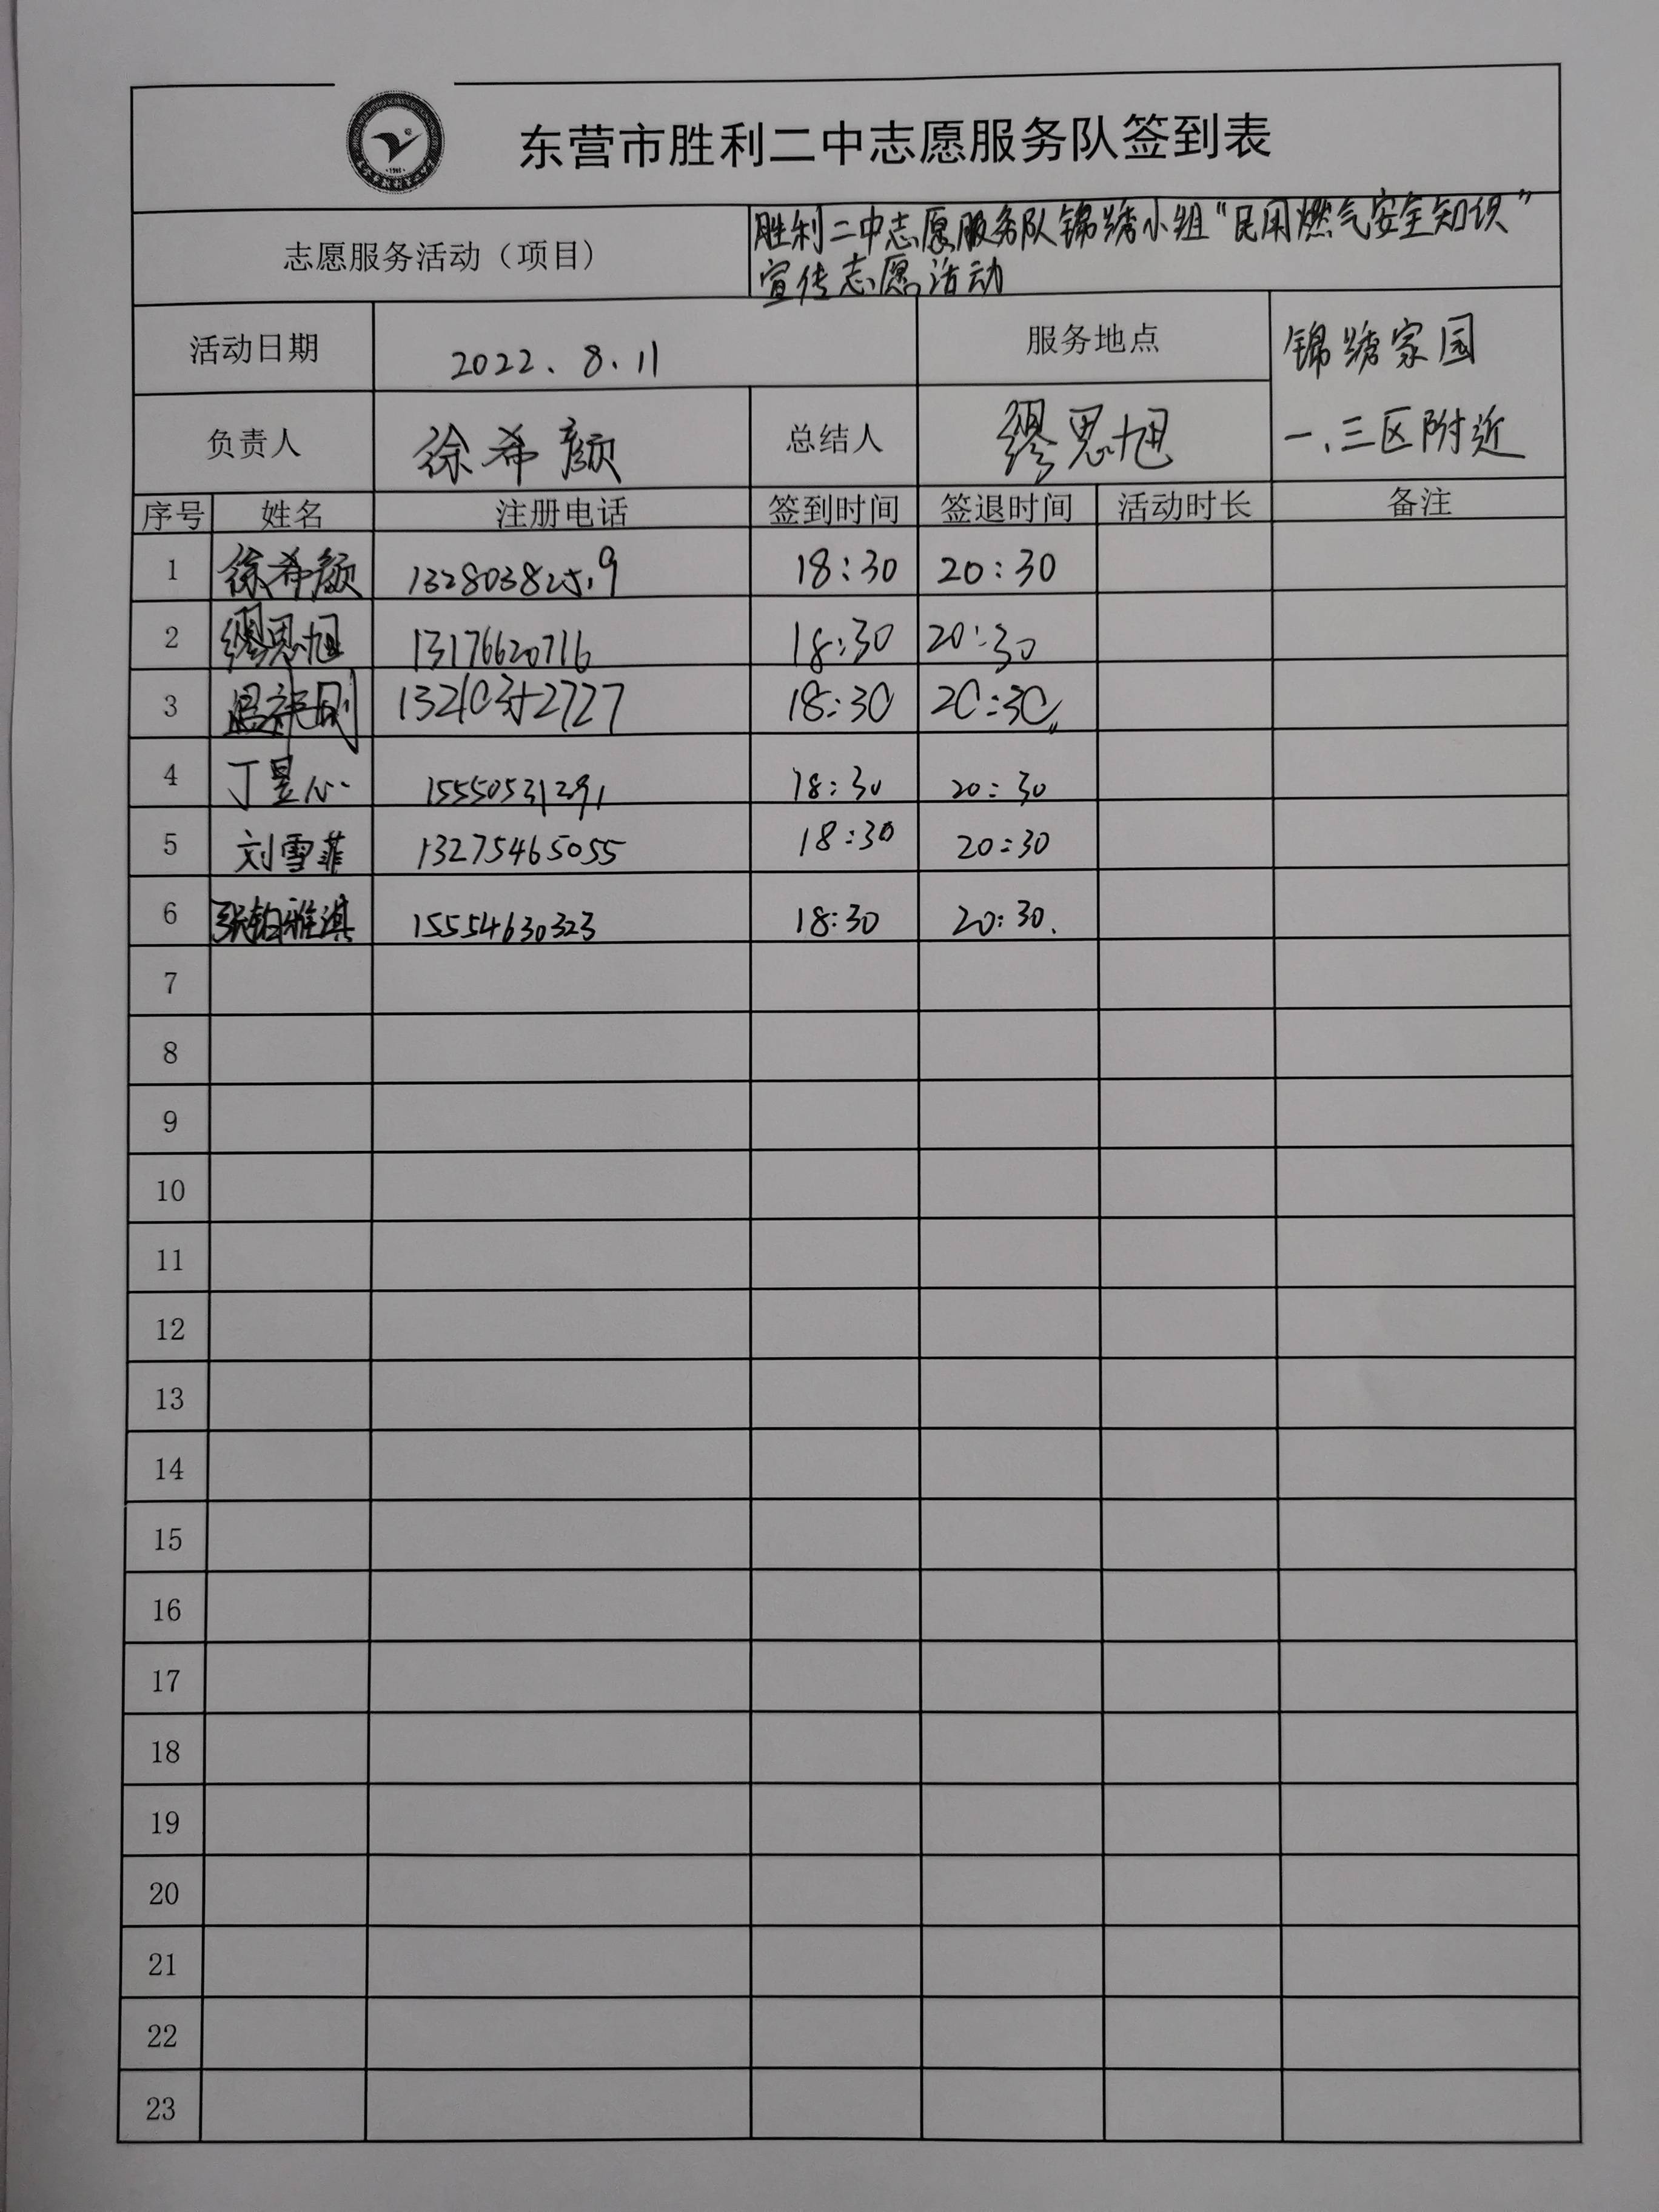 东营市胜利二中志愿服务队签到表
志愿服务活动（项目） 胜利二中志愿服务队锦绣小组“民用燃气安全知识”
宣传志愿活动
活动日期 2022.8.11 服务地点 锦绣家园
负责人 徐希颜 总结人 缪思旭 一、三区附近
序号 姓名 注册电话 签到时间 签退时间 活动时长 备注
1 徐希颜 18:30 20:30
2 缪思旭 13176620716 18:30 20:30
3 18:30 20:30
4 丁昱心 15550531291 18:30 20:30
5 刘雪菲 13275465055 18:30 20:30
6 15554630323 18:30 20:30.
7
8
9
10
11
12
13
14
15
16
17
18
19
20
21
22
23